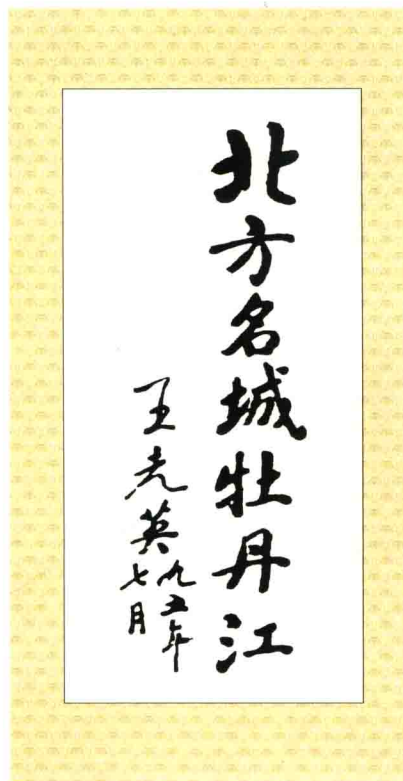 北方名城牡丹江
王光英
九五年
七月